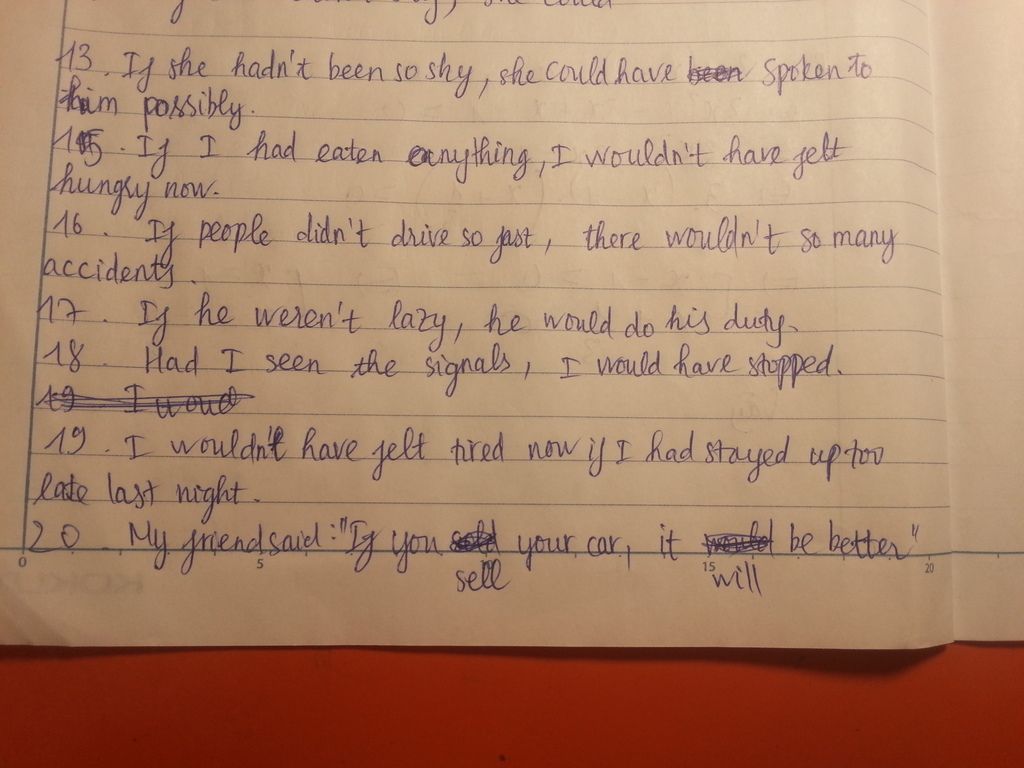 she could
13. If she hadn't been so shy, she could have been spoken to
him possibly.
15. If I had eaten anything, I wouldn't have felt
hungry now.
16. If people didn't drive so fast, there wouldn't so many
accidents.
17. If he weren't lazy, he would do his duty.
18. Had I seen the signals, I would have stopped.
19 I woud
19. I wouldn't have felt tired now if I had stayed up too
late last night.
20. My friend said: "If you sold your car, it would be better"
sell will
0 5 15 20